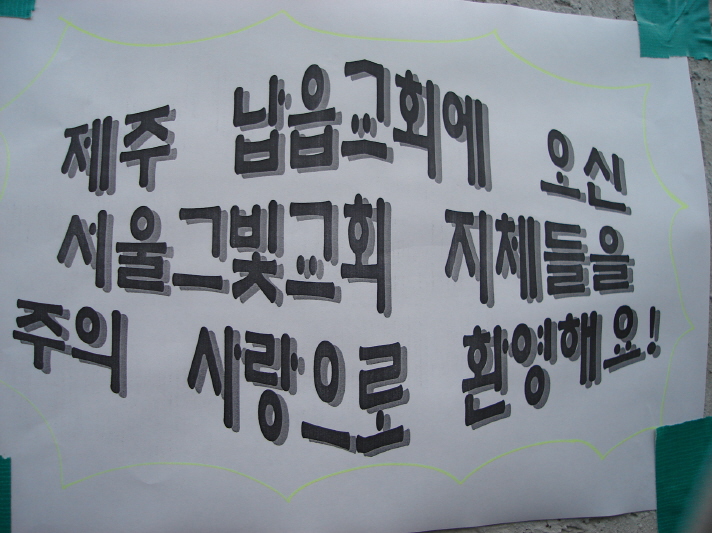 제주 납읍교회에 오신
서울그빛교회 지체들을
주의 사랑으로 환영해요!